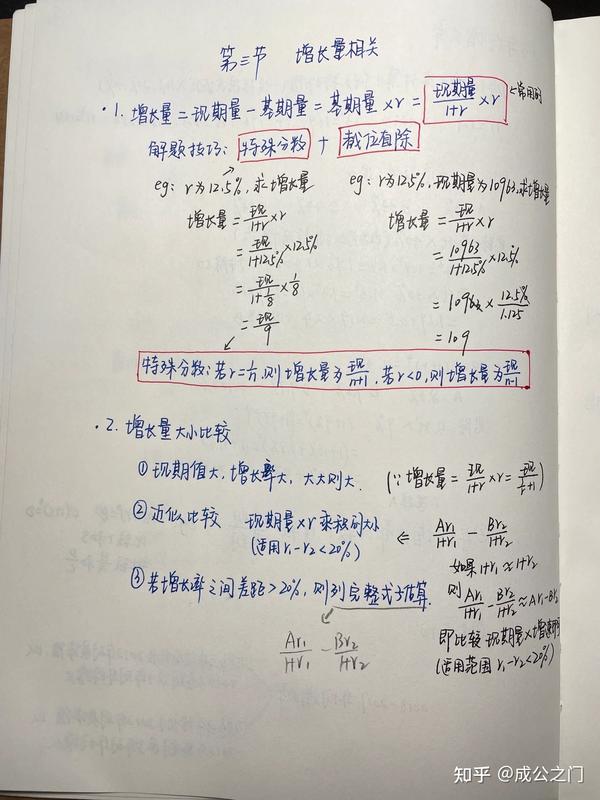 第三节 增长量相关
·1. 增长量=现期量-基期量=基期量×r=现期量/1+r ×r ←常用的
解题技巧: 特殊分数 + 截位直除
eg: r为12.5%, 求增长量
增长量=现/1+r×r
=现/1+12.5%×12.5%
=现/1+1/8×1/8
=现/9
eg: r为12.5%, 现期量为10963, 求增长量
增长量=现/1+r×r
=10963/1+12.5%×12.5%
=10963×12.5%/1.125
=109
特殊分数: 若r=1/n, 则增长量为现/n+1, 若r<0, 则增长量为现/n-1
·2. 增长量大小比较
①现期值大, 增长率大, 大大则大. (∵增长量=现/1+r×r=现/1/r+1)
②近似比较 现期量×r乘积的大小 ⇐ Ar1/1+r1 - Br2/1+r2
(适用r1-r2<20%)
如果1+r1≈1+r2
则Ar1/1+r1-Br2/1+r2≈Ar1-Br2
即比较现期量×增速即可
(适用范围r1-r2<20%)
③若增长率之间差距>20%, 则列完整式子估算.
Ar1/1+r1 - Br2/1+r2
知乎 @成公之门